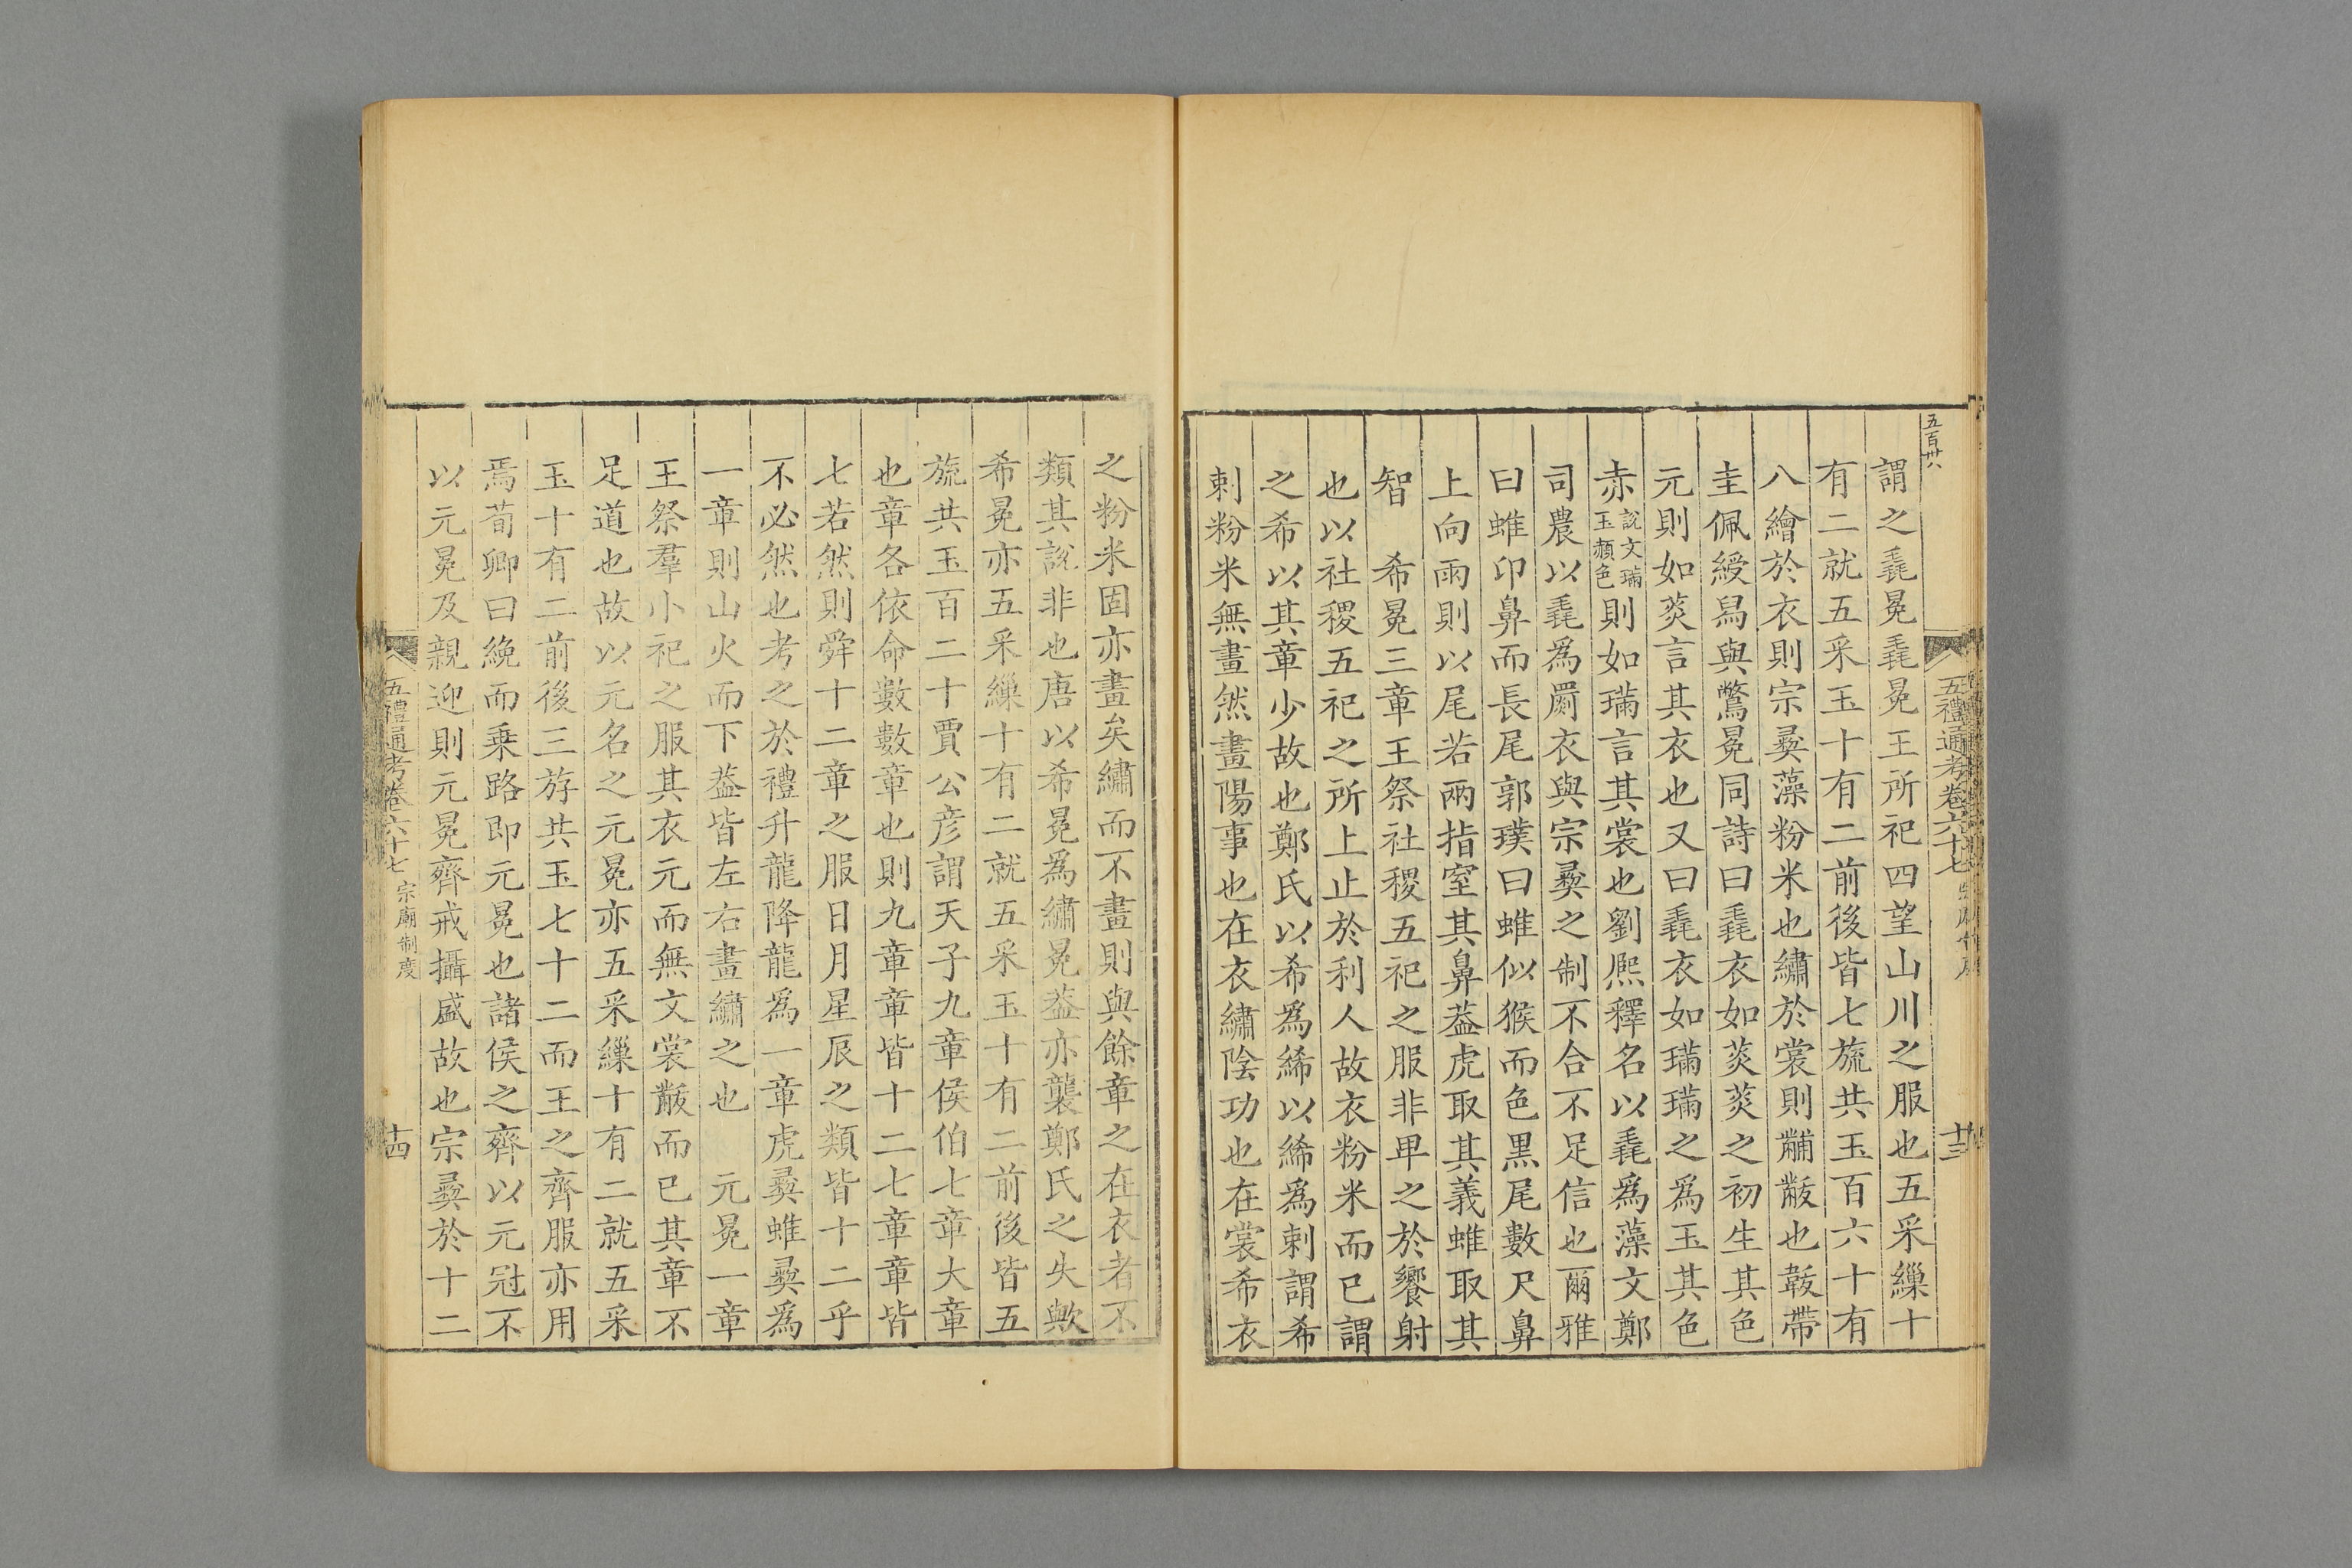 五百卅八
五禮通考卷六十七
十三
謂之毳冕毳冕王所祀四望山川之服也五采繅十
有二就五采玉十有二前後皆七旒共玉百六十有
八繪於衣則宗彝藻粉米也繡於裳則黼黻也韍帶
圭佩綬舄與鷩冕同詩曰毳衣如菼菼之初生其色
元則如菼言其衣也又曰毳衣如璊璊之為玉其色
赤說文璊玉赬色則如璊言其裳也劉熈釋名以毳為藻文鄭
司農以毳為罽衣與宗彝之制不合不足信也爾雅
曰蜼卬鼻而長尾郭璞曰蜼似猴而色黒尾數尺鼻
上向雨則以尾若兩指窒其鼻葢虎取其義蜼取其
智　希冕三章王祭社稷五祀之服非卑之於饗射
也以社稷五祀之所上止於利人故衣粉米而已謂
之希以其章少故也鄭氏以希為絺以絺為刺謂希
刺粉米無畫然畫陽事也在衣繡陰功也在裳希衣
之粉米固亦畫矣繡而不畫則與餘章之在衣者不
類其說非也唐以希冕為繡冕葢亦襲鄭氏之失歟
希冕亦五采繅十有二就五采玉十有二前後皆五
旒共玉百二十賈公彦謂天子九章侯伯七章大章
也章各依命數數章也則九章章皆十二七章章皆
七若然則舜十二章之服日月星辰之類皆十二乎
不必然也考之於禮升龍降龍為一章虎彝蜼彝為
一章則山火而下葢皆左右畫繡之也　元冕一章
王祭羣小祀之服其衣元而無文裳黻而已其章不
足道也故以元名之元冕亦五采繅十有二就五采
玉十有二前後三斿共玉七十二而王之齊服亦用
焉荀卿曰絻而乗路即元冕也諸侯之齊以元冠不
以元冕及親迎則元冕齊戒攝盛故也宗彝於十二
五禮通考卷六十七 宗廟制度
十四